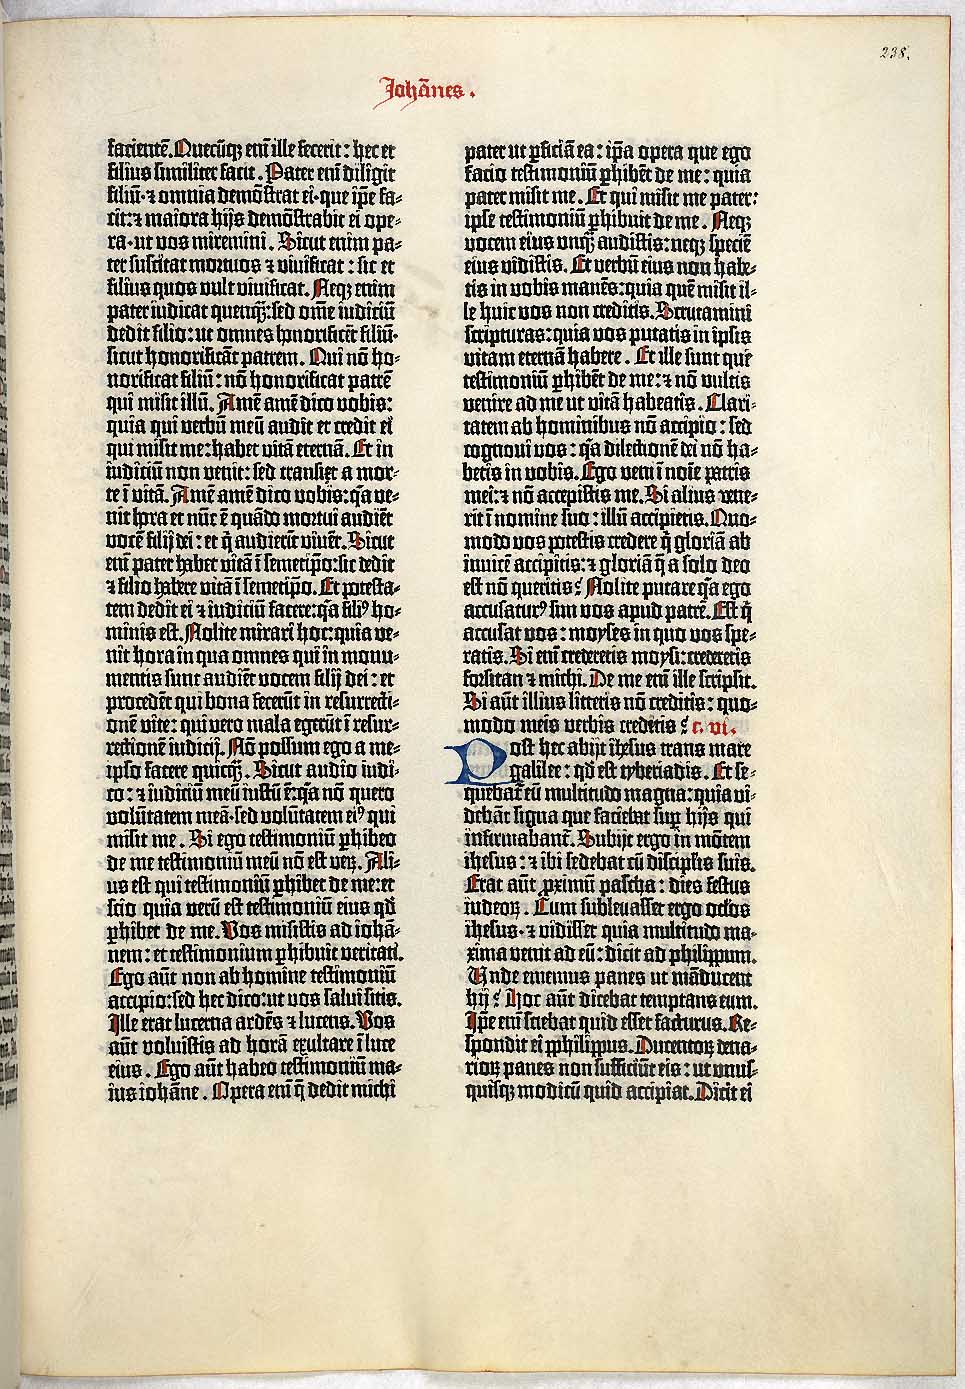 238.
Johānes.
facientē. Quecūqꝫ enī ille fecerit: hec et
filius similiter facit. Pater enī diligit
filiū·ꝛ omnia demōstrat ei·que ip̄e fa-
cit:ꝛ maiora hijs demōstrabit ei ope-
ra·ut vos miremini. Sicut enim pa-
ter suscitat mortuos ꝛ vivificat: sic et
filius quos vult vivificat. Neqꝫ enim
pater iudicat quenqꝫ: sed om̄e iudiciū
dedit filio: ut omnes honorificēt filiū·
sicut honorificāt patrem. Qui nō ho-
norificat filiū: nō honorificat patrē
qui misit illū. Amē amē dico vobis:
quia qui verbū meū audit et credit ei
qui misit me: habet vitā eternā. Et in
iudiciū non venit: sed transiet a mor-
te ī vitā. Amē amē dico vobis: q̄a ve-
nit hora et nūc ē quādo mortui audiēt
vocē filij dei: et q̄ audierit vivēt. Sicut
enī pater habet vitā ī semetip̄o: sic dedit
ꝛ filio habere vitā ī semetip̄o. Et potesta-
tem dedit ei ꝛ iudiciū facere: q̄a filiꝰ ho-
minis est. Nolite mirari hoc: quia ve-
nit hora in qua omnes qui in monu-
mentis sunt audiēt vocem filij dei: et
procedēt qui bona fecerūt in resurrecti-
onē vite: qui vero mala egerūt ī resur-
rectionē iudicij. Nō possum ego a me-
ipso facere quicqꝫ. Sicut audio iudi-
co: ꝛ iudiciū meū iustū ē: q̄a nō quero
volūtatem meā·sed volūtatem eiꝰ qui
misit me. Si ego testimoniū ꝑhibeo
de me testimoniū meū nō est veꝝ. Ali-
us est qui testimoniū ꝑhibet de me: et
scio quia verū est testimoniū eius qd̄
ꝑhibet de me. Vos misistis ad iohā-
nem: et testimonium ꝑhibuit veritati.
Ego aūt non ab homine testimoniū
accipio: sed hec dico: ut vos salvi sitis.
Ille erat lucerna ardēs ꝛ lucens. Vos
aūt voluistis ad horā exultare ī luce
eius. Ego aūt habeo testimoniū ma-
ius iohāne. Opera enī q̄ dedit michi
pater ut ꝑficiā ea: ip̄a opera que ego
facio testimoniū ꝑhibēt de me: quia
pater misit me. Et qui misit me pater:
ipse testimoniū ꝑhibuit de me. Neqꝫ
vocem eius unqꝫ audistis: neqꝫ speciē
eius vidistis. Et verbū eius non habe-
tis in vobis manēs: quia quē misit il-
le huic vos non creditis. Scrutamini
scripturas: quia vos putatis in ipsis
vitam eternā habere. Et ille sunt que
testimoniū ꝑhibēt de me: ꝛ nō vultis
venire ad me ut vitā habeatis. Clari-
tatem ab hominibus nō accipio: sed
cognovi vos: q̄a dilectionē dei nō ha-
betis in vobis. Ego veni ī noīe patris
mei: ꝛ nō accepistis me. Si alius vene-
rit ī nomine suo: illū accipietis. Quo-
modo vos potestis credere q̄ gloriā ab
invicē accipitis: ꝛ gloriā q̄ a solo deo
est nō queritis? Nolite putare q̄a ego
accusaturꝰ sim vos apud patrē. Est q̄
accusat vos: moyses in quo vos spe-
ratis. Si enī crederetis moysi: crederetis
forsitan ꝛ michi. De me enī ille scripsit.
Si aūt illius litteris nō creditis: quo-
modo meis verbis credetis? c. vi.
Post hec abijt ihesus trans mare
galilee: qd̄ est tyberiadis. Et se-
quebat̄ eū multitudo magna: quia vi-
debāt signa que faciebat suꝑ hijs qui
infirmabant̄. Subijt ergo in mōtem
ihesus: ꝛ ibi sedebat cū discipl̄is suis.
Erat aūt ꝓximū pascha: dies festus
iudeoꝝ. Cum sublevasset ergo ocl̄os
ihesus·ꝛ vidisset quia multitudo ma-
xima venit ad eū: dicit ad philippum.
Unde ememus panes ut māducent
hij? Hoc aūt dicebat temptans eum.
Ip̄e enī sciebat quid esset facturus. Re-
spondit ei philippus. Ducentoꝝ dena-
rioꝝ panes non sufficiūt eis: ut unus-
quisqꝫ modicū quid accipiat. Dicit ei